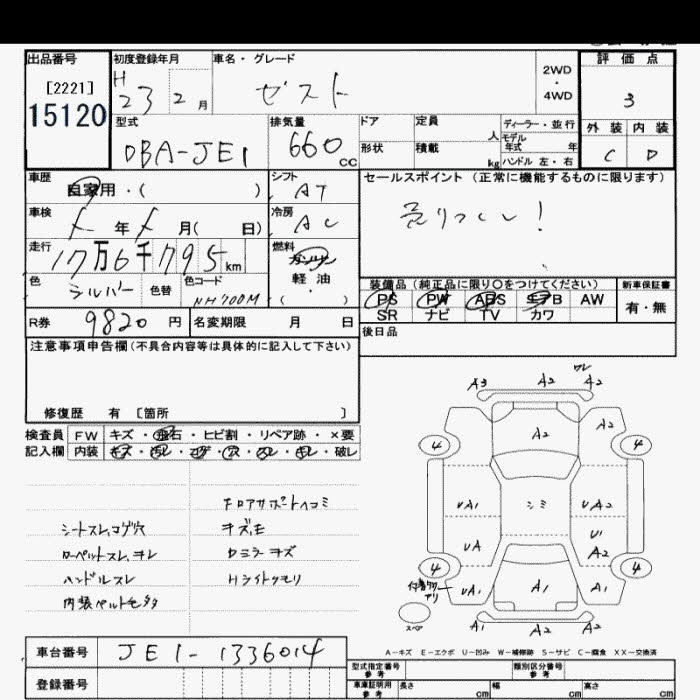 出品番号
[2221]
15120
初度登録年月
H 23 2 月
車名・グレード
ゼスト
2WD
・
4WD
評価点
3
外装 内装
C D
型式
DBA-JE1
排気量
660 CC
ドア
形状
定員
人
積載
kg
ディーラー・並行
モデル年式 年
ハンドル 左・右
車歴
自家用・( )
シフト
AT
車検
年 月( 日)
冷房
AC
走行
17万6千795 km
燃料
ガソリン
軽油
( ・ )
色
シルバー
色替
色コード
NH700M
R券 9820 円
名変期限 月 日
セールスポイント (正常に機能するものに限ります)
売りつくし!
装備品 (純正品に限り〇をつけてください)
PS PW ABS エアB AW
SR ナビ TV カワ
新車保証書
有・無
後日品
注意事項申告欄(不具合内容等は具体的に記入して下さい)
修復歴 有 〔箇所 〕
検査員
記入欄
FW キズ・飛石・ヒビ割・リペア跡・×要
内装 キズ・汚レ・コゲ・穴・スレ・キレ・破レ
シートスレ、コゲ穴
ハンドルスレ
キズ、モ
Dミラーキズ
Hライトクモリ
A3 A2 ワレ A2
A2 A2
4 4
UA1 シミ UA2
UA U1 A2
4 4
UA1 A1 A1
スペア
A1 A2 A2
A-キズ E-エクボ U-凹み W-補修跡 S-サビ C-腐食 XX-交換済
車台番号 JE1-1336014
登録番号
型式指定番号 参考
類別区分番号 参考
車庫証明用 参考
長さ cm 幅 cm 高さ cm